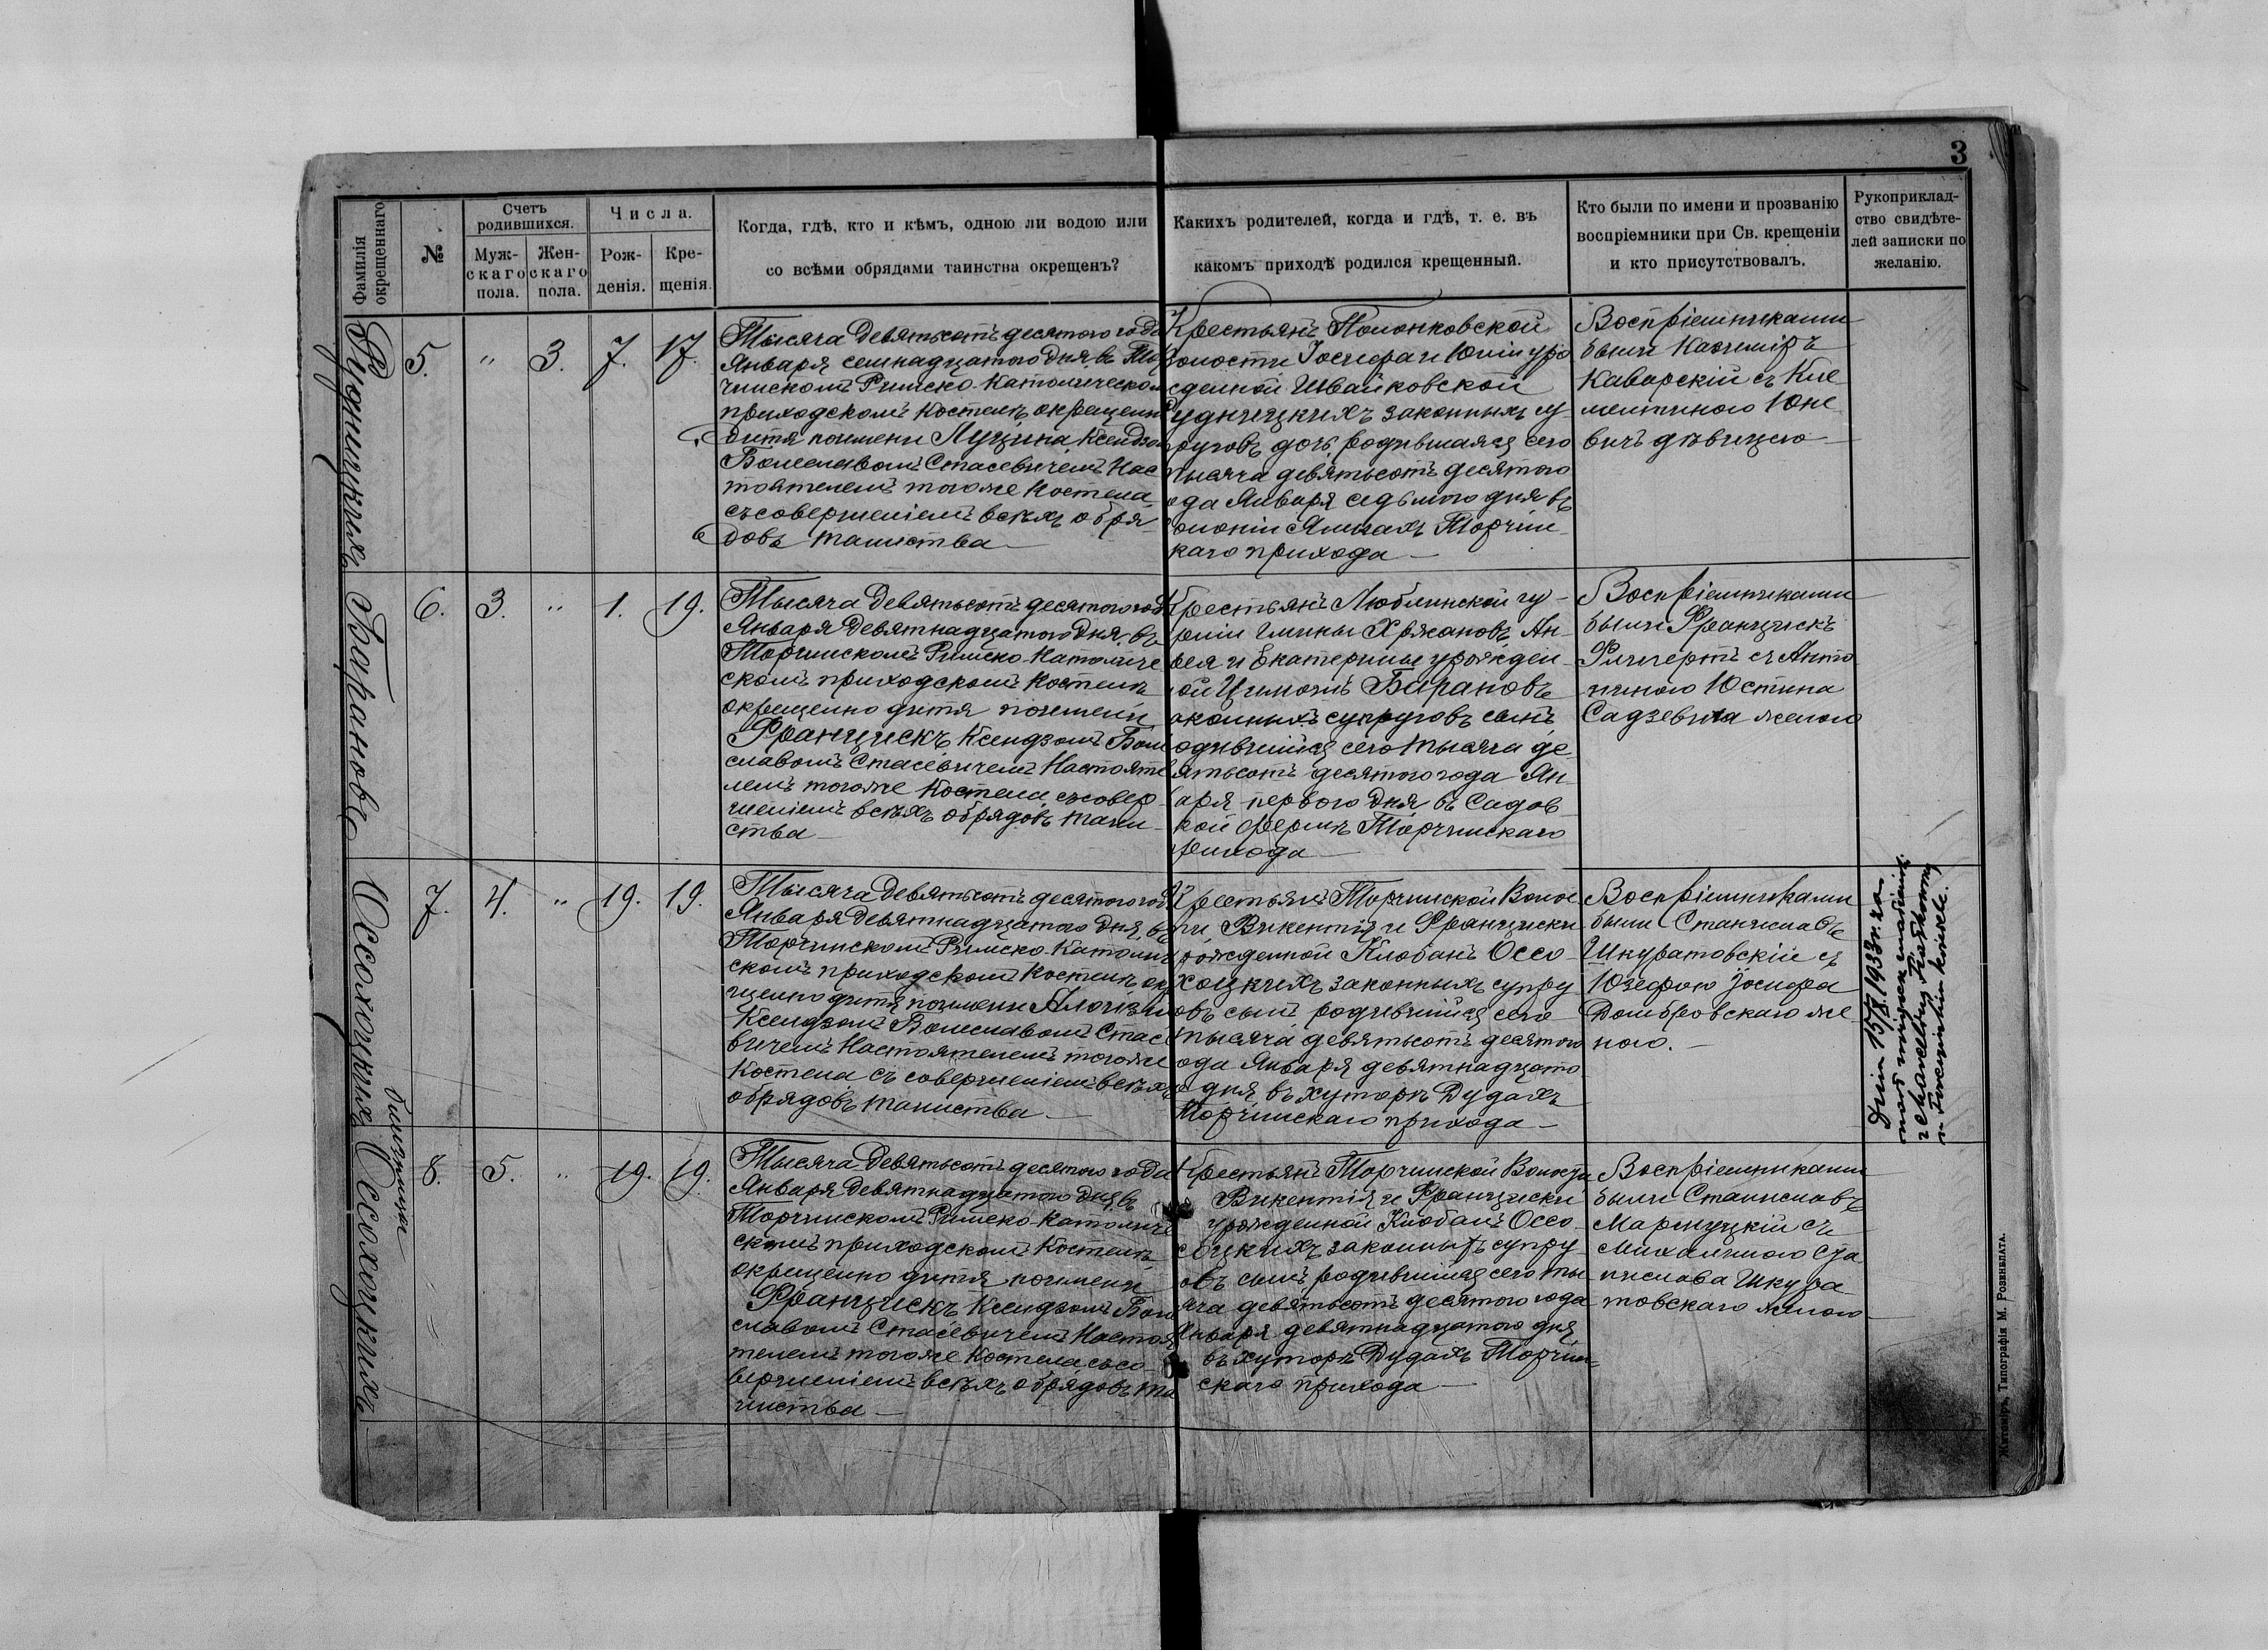 3
Фамилія окрещеннаго
№
Счетъ родившихся.
Муж-скаго пола.
Жен-скаго пола.
Числа.
Рож-денія.
Кре-щенія.
Когда, гдѣ, кто и кѣмъ, одною ли водою или
со всѣми обрядами таинства окрещенъ?
Каихъ родителей, когда и гдѣ, т. е. въ
какомъ приходѣ родился крещенный.
Кто были по имени и прозванію
воспріемники при Св. крещеніи
и кто присутствовалъ.
Рукоприклад-
ство свидѣте-
лей записки по
желанію.
Рудницкихъ
5.
"
3.
7.
17.
Тысяча девятьсотъ десятого года
Января семнадцатого дня, въ Тор
чинскомъ Римско-Католическом
приходскомъ костелѣ окрещенно
дитя поимени Луціна, Ксендзом
Болеславомъ Стасевичемъ Нас
тоятелемъ тогоже костела
съ совершеніемъ всѣхъ обря
довъ таинства
Крестьянъ Полонковской
волости Іосифа и Юліи уро
жденной Швайковской
Рудницкихъ законныхъ су-
руговъ дочь, родившаяся сего
тысяча девятьсотъ десятого
ода Января седьмого дня въ
олоніи Торчин
каго прихода
Воспріемниками
были Казиміръ
Каварскій съ Кле
ментиною Юне
вичъ дѣвицею
Барановъ
6.
3.
"
1.
19.
Тысяча девятьсотъ десятого года
Января девятнадцатого дня, въ
Торчинскомъ Римско-Католиче
скомъ приходскомъ костелѣ
окрещенно дитя поимени
Францискъ Ксендзомъ Боле
славомъ Стасевичемъ Настояте
лемъ тогоже костела, съ совер
шеніемъ всѣхъ обрядовъ таин
ства
Крестьянъ Люблинской гу-
рніи Гмины Хржановъ Ан-
рея и Екатерины урожден
ой Барановъ
аконныхъ супруговъ сынъ
одившійся сего тысяча де
ятьсотъ десятого года Ян
аря первого дня въ Садов
кой фермѣ Торчинскаго
рихода
Воспріемниками
были Францискъ
съ Анто
ниною Юстина
Садзевича женою
Ососхоцкихъ
7.
4.
"
19.
19.
Тысяча девятьсотъ десятого года
Января девятнадцатого дня, въ
Торчинскомъ Римско-Католич
скомъ приходскомъ костелѣ окр
щенно дитя поимени Алоізій
Ксендзомъ Болеславомъ Стасе
вичемъ Настоятелемъ тогоже
костела съ совершеніемъ всѣхъ
обрядовъ таинства
Крестьянъ Торчинской Волос
ти, Викентія и Франциски
рожденной Клобанъ Оссо-
хоцкихъ законныхъ супру
овъ сынъ родившійся сего
тысяча девятьсотъ десятого
ода Января девятнадцато
о дня въ хуторѣ Дудахъ
Торчинскаго прихода
Воспріемниками
были Станиславъ
Шкуратовскій съ
Юзефою Іосифа
Домбровскаго же
ною.
Dnia 15/X 1933 r.
близнеца
Оссохоцкихъ
8.
5.
"
19.
19.
Тысяча девятьсотъ десятого года
Января девятнадцатого дня, въ
Торчинскомъ Римско-Католиче
скомъ приходскомъ костелѣ
окрещенно дитя поимени
Францискъ Ксендзомъ Боле
славомъ Стасевичемъ Настоя
телемъ тогоже костела съ со
вершеніемъ всѣхъ обрядовъ та
инства
Крестьянъ Торчинской Волости
Викентія и Франциски
урожденной Клобанъ Оссо
хоцкихъ законныхъ супру
овъ сынъ родившійся сего ты
яча девятьсотъ десятого года
Января девятнадцатого дня
въ хуторѣ Дудахъ Торчин
скаго прихода
Воспріемниками
были Станиславъ
Марлуцкій съ
Михалиною Ста
нислава Шкура
товскаго женою
Житоміръ, Типографія М. Розенблата.